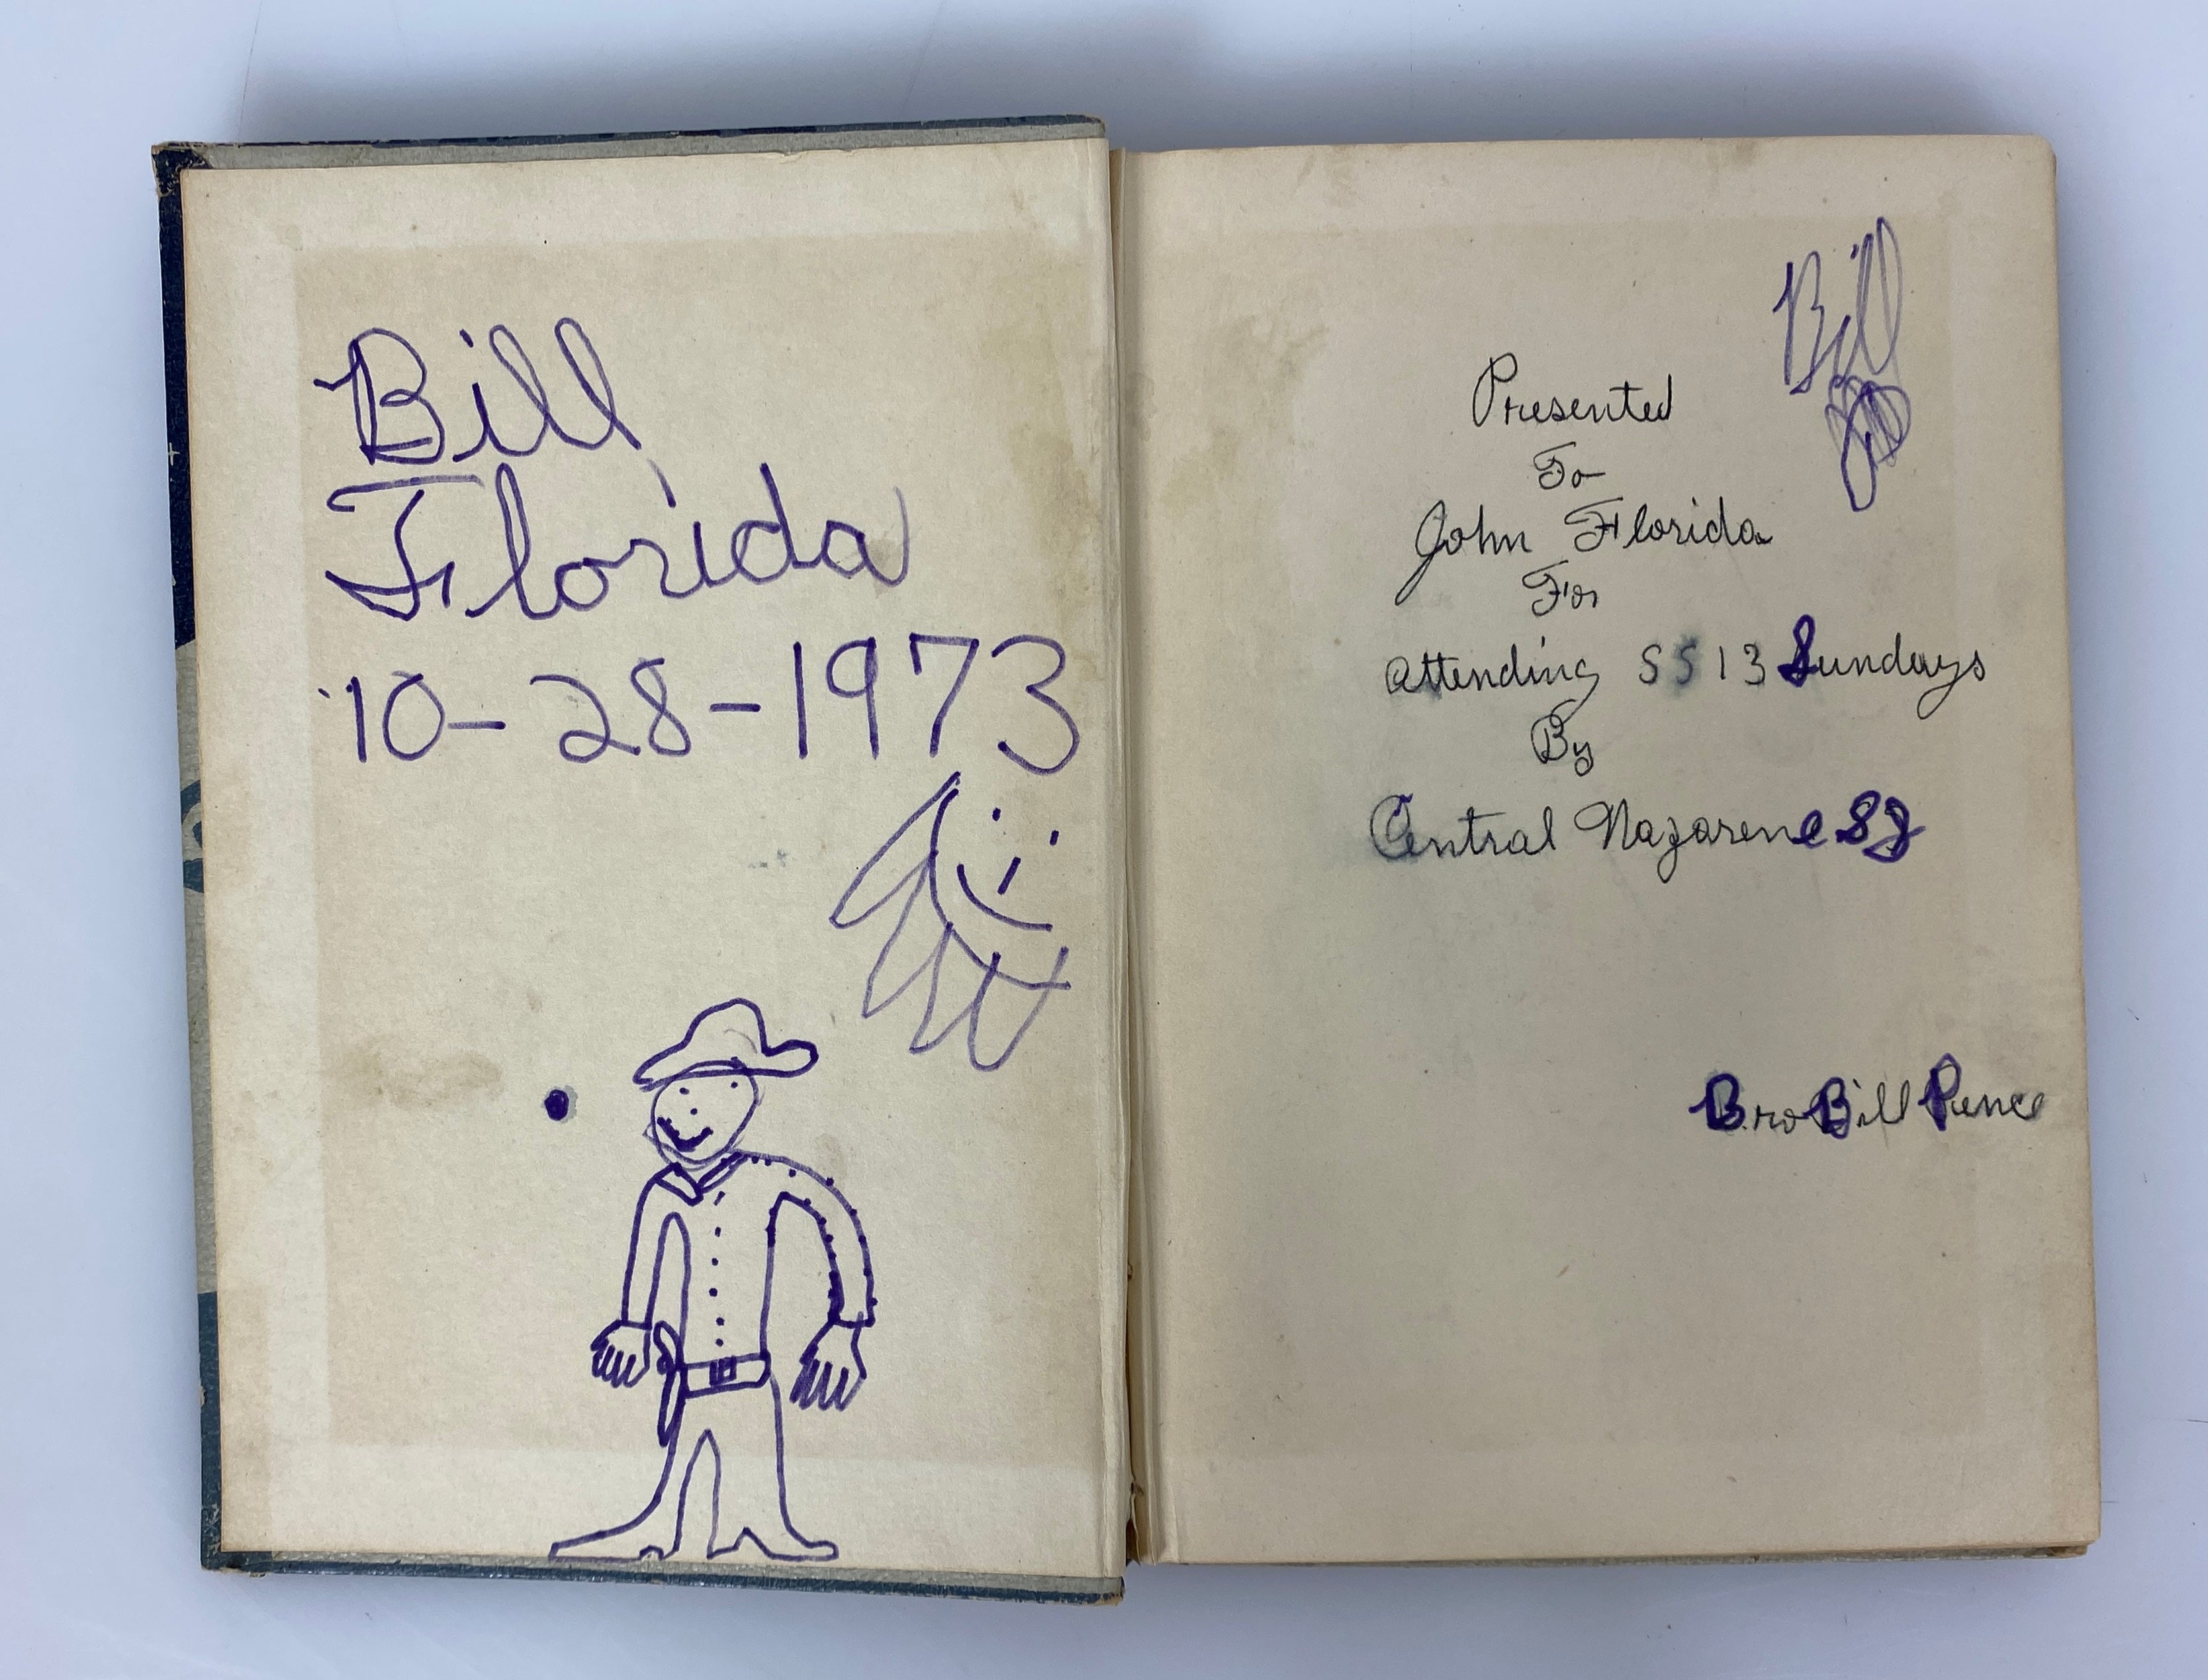 Bill
Florida
10-28-1973
Bill
Presented
To
John Florida
For
Attending SS 13 Sundays
By
Central Nazarene SS
Bro Bill